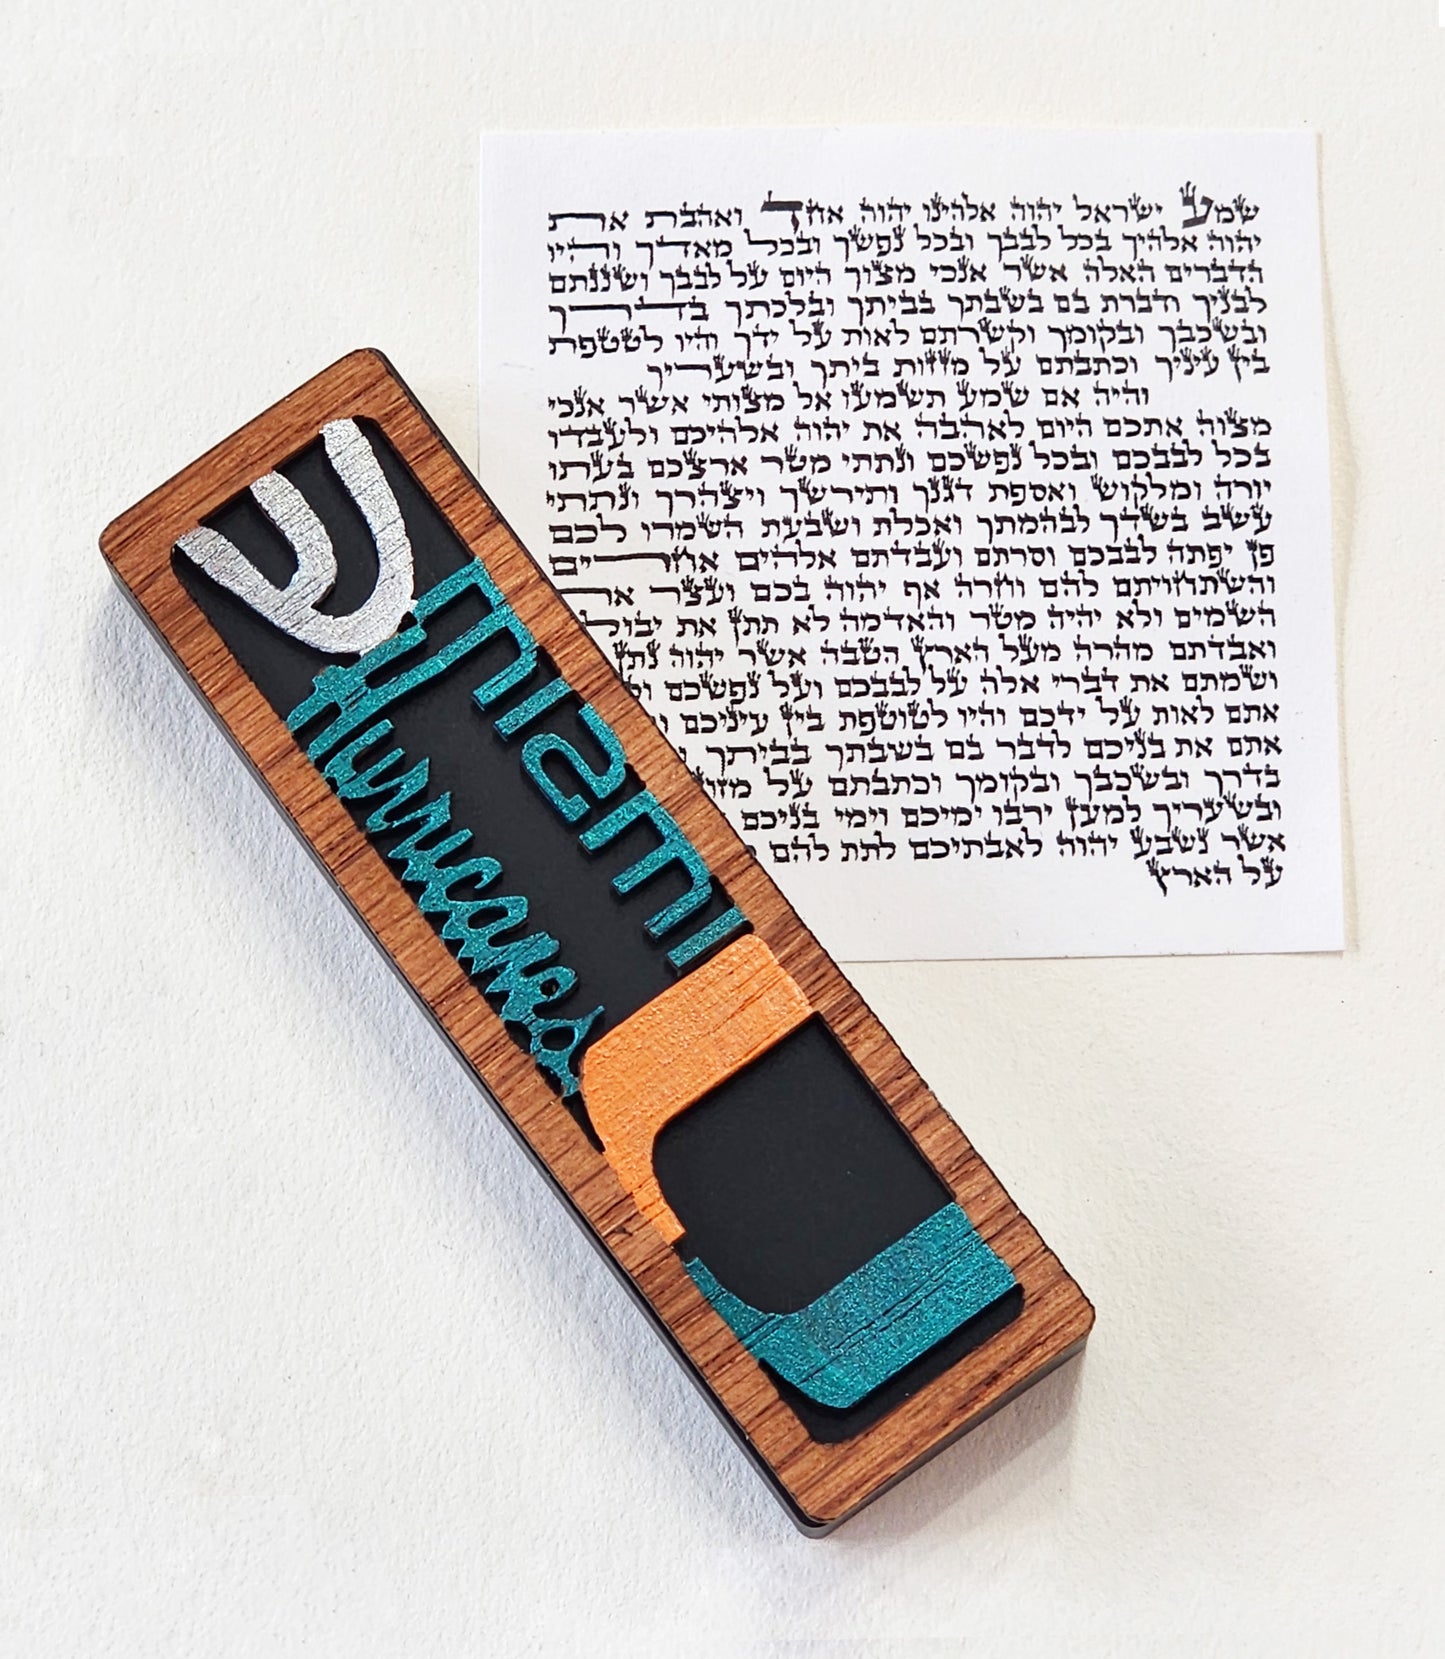 שמע ישראל יהוה אלהינו יהוה אחד ואהבת את
יהוה אלהיך בכל לבבך ובכל נפשך ובכל מאדך והיו
הדברים האלה אשר אנכי מצוך היום על לבבך ושננתם
לבניך ודברת בם בשבתך בביתך ובלכתך בדרך
ובשכבך ובקומך וקשרתם לאות על ידך והיו לטטפת
בין עיניך וכתבתם על מזזות ביתך ובשעריך
והיה אם שמע תשמעו אל מצותי אשר אנכי
מצוה אתכם היום לאהבה את יהוה אלהיכם ולעבדו
בכל לבבכם ובכל נפשכם ונתתי מטר ארצכם בעתו
יורה ומלקוש ואספת דגנך ותירשך ויצהרך ונתתי
עשב בשדך לבהמתך ואכלת ושבעת השמרו לכם
פן יפתה לבבכם וסרתם ועבדתם אלהים אחרים
והשתחויתם להם וחרה אף יהוה בכם ועצר את
השמים ולא יהיה מטר והאדמה לא תתן את יבול
ואבדתם מהרה מעל הארץ הטבה אשר יהוה נתן
ושמתם את דברי אלה על לבבכם ועל נפשכם
אתם לאות על ידכם והיו לטוטפת בין עיניכם
אתם את בניכם לדבר בם בשבתך בביתך
בדרך ובשכבך ובקומך וכתבתם על מזו
ובשעריך למען ירבו ימיכם וימי בניכם
אשר נשבע יהוה לאבתיכם לתת להם
על הארץ
ש
miami
Hurricanes